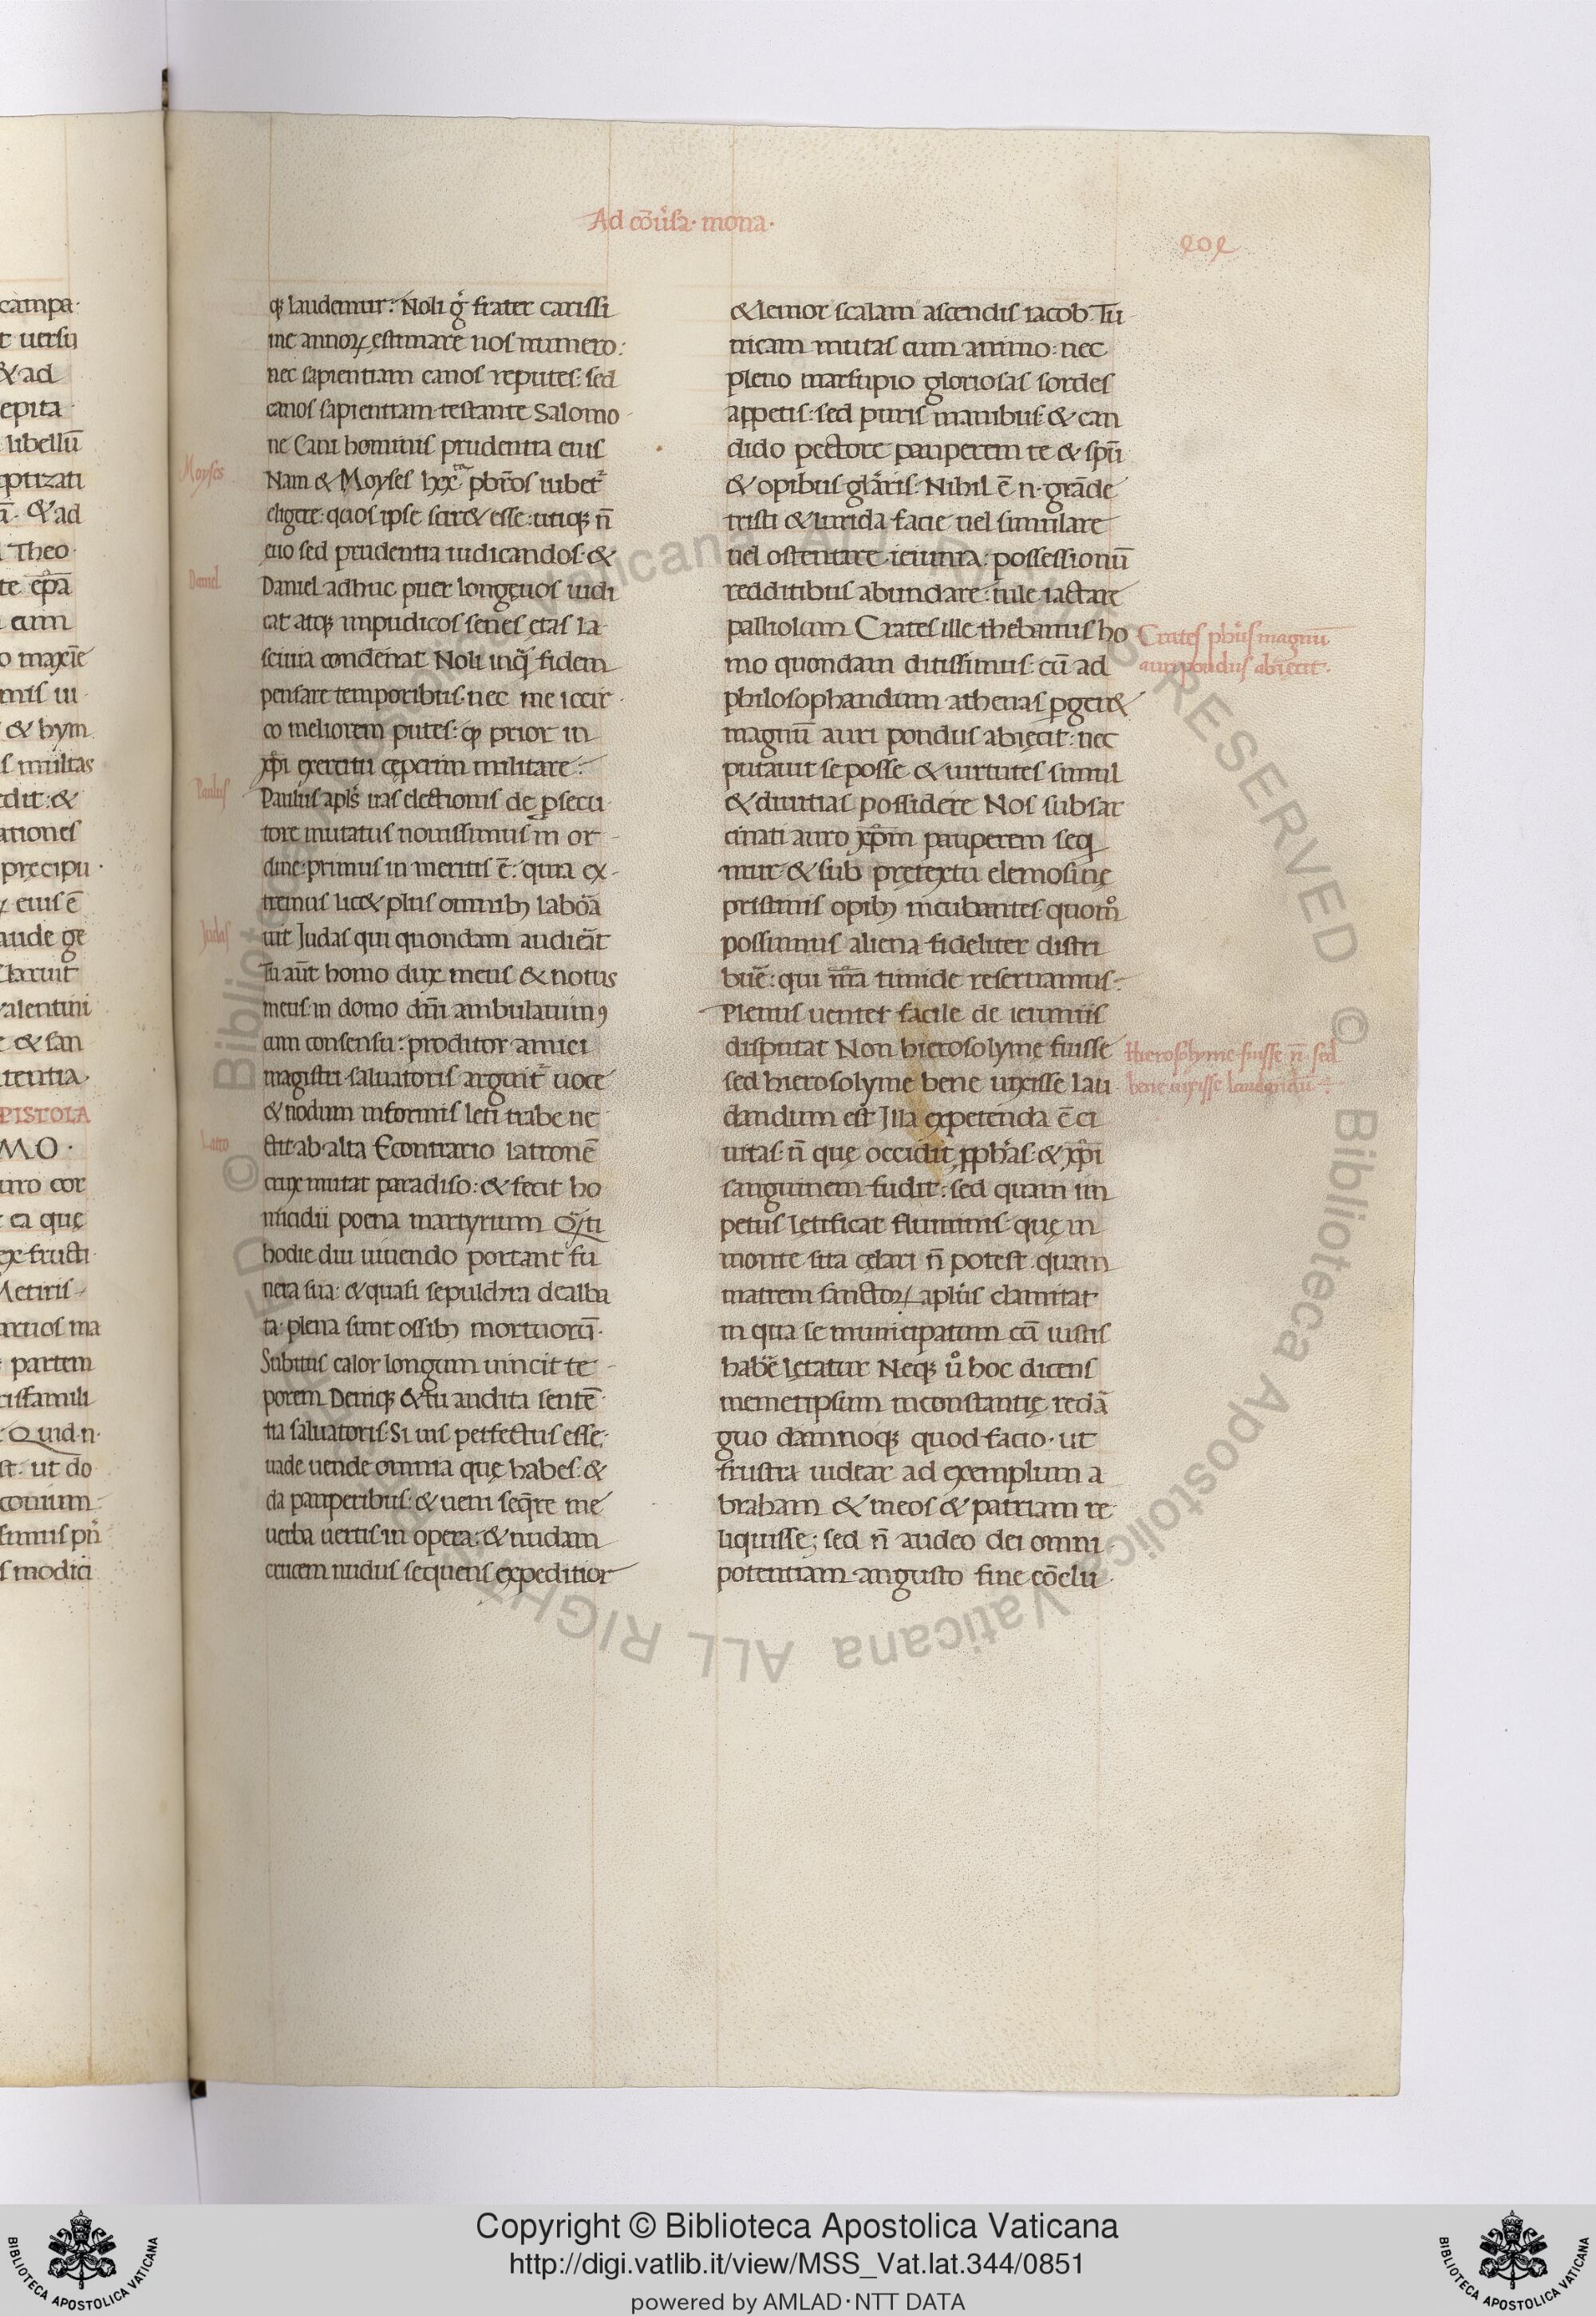 Ad cōũsa· mona·
campa·
t uersu
& ad
epita·
libellū
eptizati
ā· & ad
Theo·
te ep̄a
cum
o maxīe
mis ui·
& hym
s multas
edit: &
ationes
precipu·
eius ē
aude ge
claruit
alentini
e & san
tentia·
EPISTOLA
MO·
uro cor
ea que
ex fructi
Metiris
artuos ma
partem
risfamili
Quid·n·
st· ut do
conium
simus pn̄
s modici
Moyses
Daniel
Paulus
Judas
Latro
qꝫ laudemur: Noli g̊ frater carissi
me annoꝝ ęstimare nos numero:
nec sapientiam canos reputes: sed
canos sapientiam·testante Salomo
ne Cani hominis prudentia eius
Nam & Moyses lxx^ta pb̄ros iubet^r
eligere: quos ipse scir& esse: utiqꝫ n̄
ęuo sed prudentia iudicandos· &
Daniel adhuc puer longęuos iudi
cat atqꝫ impudicos senes ętas la
sciuia condēnat Noli inq̄ fidem
pensare temporibus· nec me iccir
co meliorem putes: qp̄ prior in
xp̄i exercitu cęperim militare:
Paulus apl's uas electionis de ꝑsecu
tore mutatus nouissimus in or
dine· primus in meritis ē: quia ex
tremus lic& plus omnibꝫ labōa
uit Judas qui quondam audiēat
Tu aūt homo dux meus & notus
meus· in domo dm̄i ambulauimꝰ
cum consensu: proditor amici
magistri saluatoris arguit^r uoce
& nodum informis leti trabe ne
ctit ab· alta Econtrario latronē
crux mutat paradiso: & fecit ho
micidii poena martyrium Q̄nti
hodie diu uiuendo portant fu
nera sua: & quasi sepulchra dealba
ta· plena sunt ossibꝫ mortuorū·
Subitus calor longum uincit te
porem Deniqꝫ & tu audita sentē
tia saluatoris· Si uis perfectus esse:
uade uende omnia quę habes· &
da pauperibus: & ueni seq̄re me
uerba uertis in opera: & nudam
crucem nudus sequens expeditior
& leuior scalam ascendis iacob· Tu
nicam mutas cum animo: nec
pleno marsupio gloriosas sordes
appetis: sed puris manibus· & can
dido pectore pauperem te & spū
& opibus· glāris· Nihil ē n· grāde
tristi & lurida facie uel simulare
uel ostentare ieiunia: possessionū
redditibus abundare: uile iactare
palliolum Crates ille thebanus ho
mo quondam ditissimus: cū ad
philosophandum athenas ꝑger&
magnū auri pondus abiecit: nec
putauit se posse & uirtutes simul
& diuitias possidere Nos subfar
cinati auro xp̄m pauperem seq̄
mur & sub pretextu elemosinę
pristinis opibꝫ incubantes· quom̊
possumus aliena fideliter distri
buē: qui nr̄a timide reseruamus:
Plenus uenter facile de ieiuniis
disputat Non hierosolymę fuisse
sed hierosolymę bene uixisse lau
dandum est Illa expetenda ē ci
uitas· n̄ quę occidit ꝓph̄as· & xp̄i
sanguinem fudit: sed quam im
petus lętificat fluminis· quę in
monte sita cęlari n̄ potest· quam
matrem sanctoꝝ aplūs clamitat
in qua se municipatum cū iustis
habē lętatur Neqꝫ ů hoc dicens
memetipsum inconstantię redā
guo damnoqꝫ quod facio· ut
frustra uidear ad exemplum a
braham & meos & patriam re
liquisse; sed n̄ audeo dei omni
potentiam angusto fine cōclu
Crates ph'us magnū
auri pondus abiecit·
Hierosolyme fuisse n̄ sed
bene uixisse laudandū ÷
© Biblioteca Apostolica Vaticana ALL RIGHTS RESERVED
Copyright © Biblioteca Apostolica Vaticana
http://digi.vatlib.it/view/MSS_Vat.lat.344/0851
powered by AMLAD·NTT DATA
BIBLIOTECA APOSTOLICA VATICANA
BIBLIOTECA APOSTOLICA VATICANA